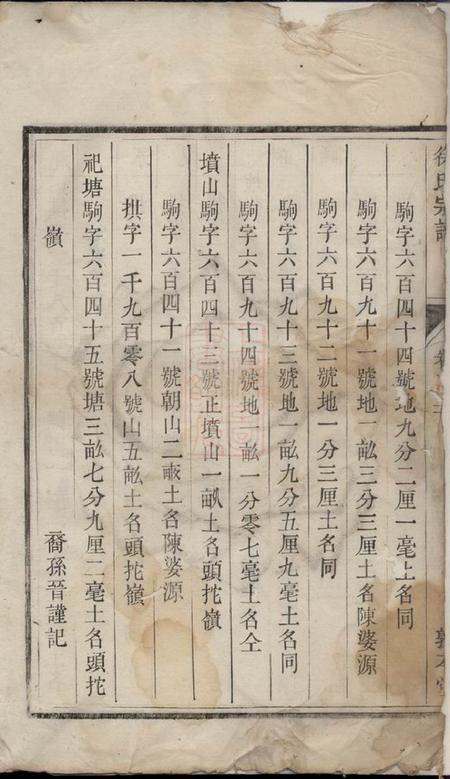 徐氏宗譜
駒字六百四十四號地九分二厘一毫土名同
駒字六百九十一號地一畝三分三厘土名陳婆源
駒字六百九十二號地一分三厘土名同
駒字六百九十三號地一畝九分五厘九毫土名同
駒字六百九十四號地一畝一分零七毫土名仝
墳山駒字六百四十三號正墳山一畝土名頭拕嶺
駒字六百四十一號朝山二畝土名陳婆源
拱字一千九百零八號山五畝土名頭拕嶺
祀塘駒字六百四十五號塘三畝七分九厘二毫土名頭拕
嶺
裔孫晉謹記